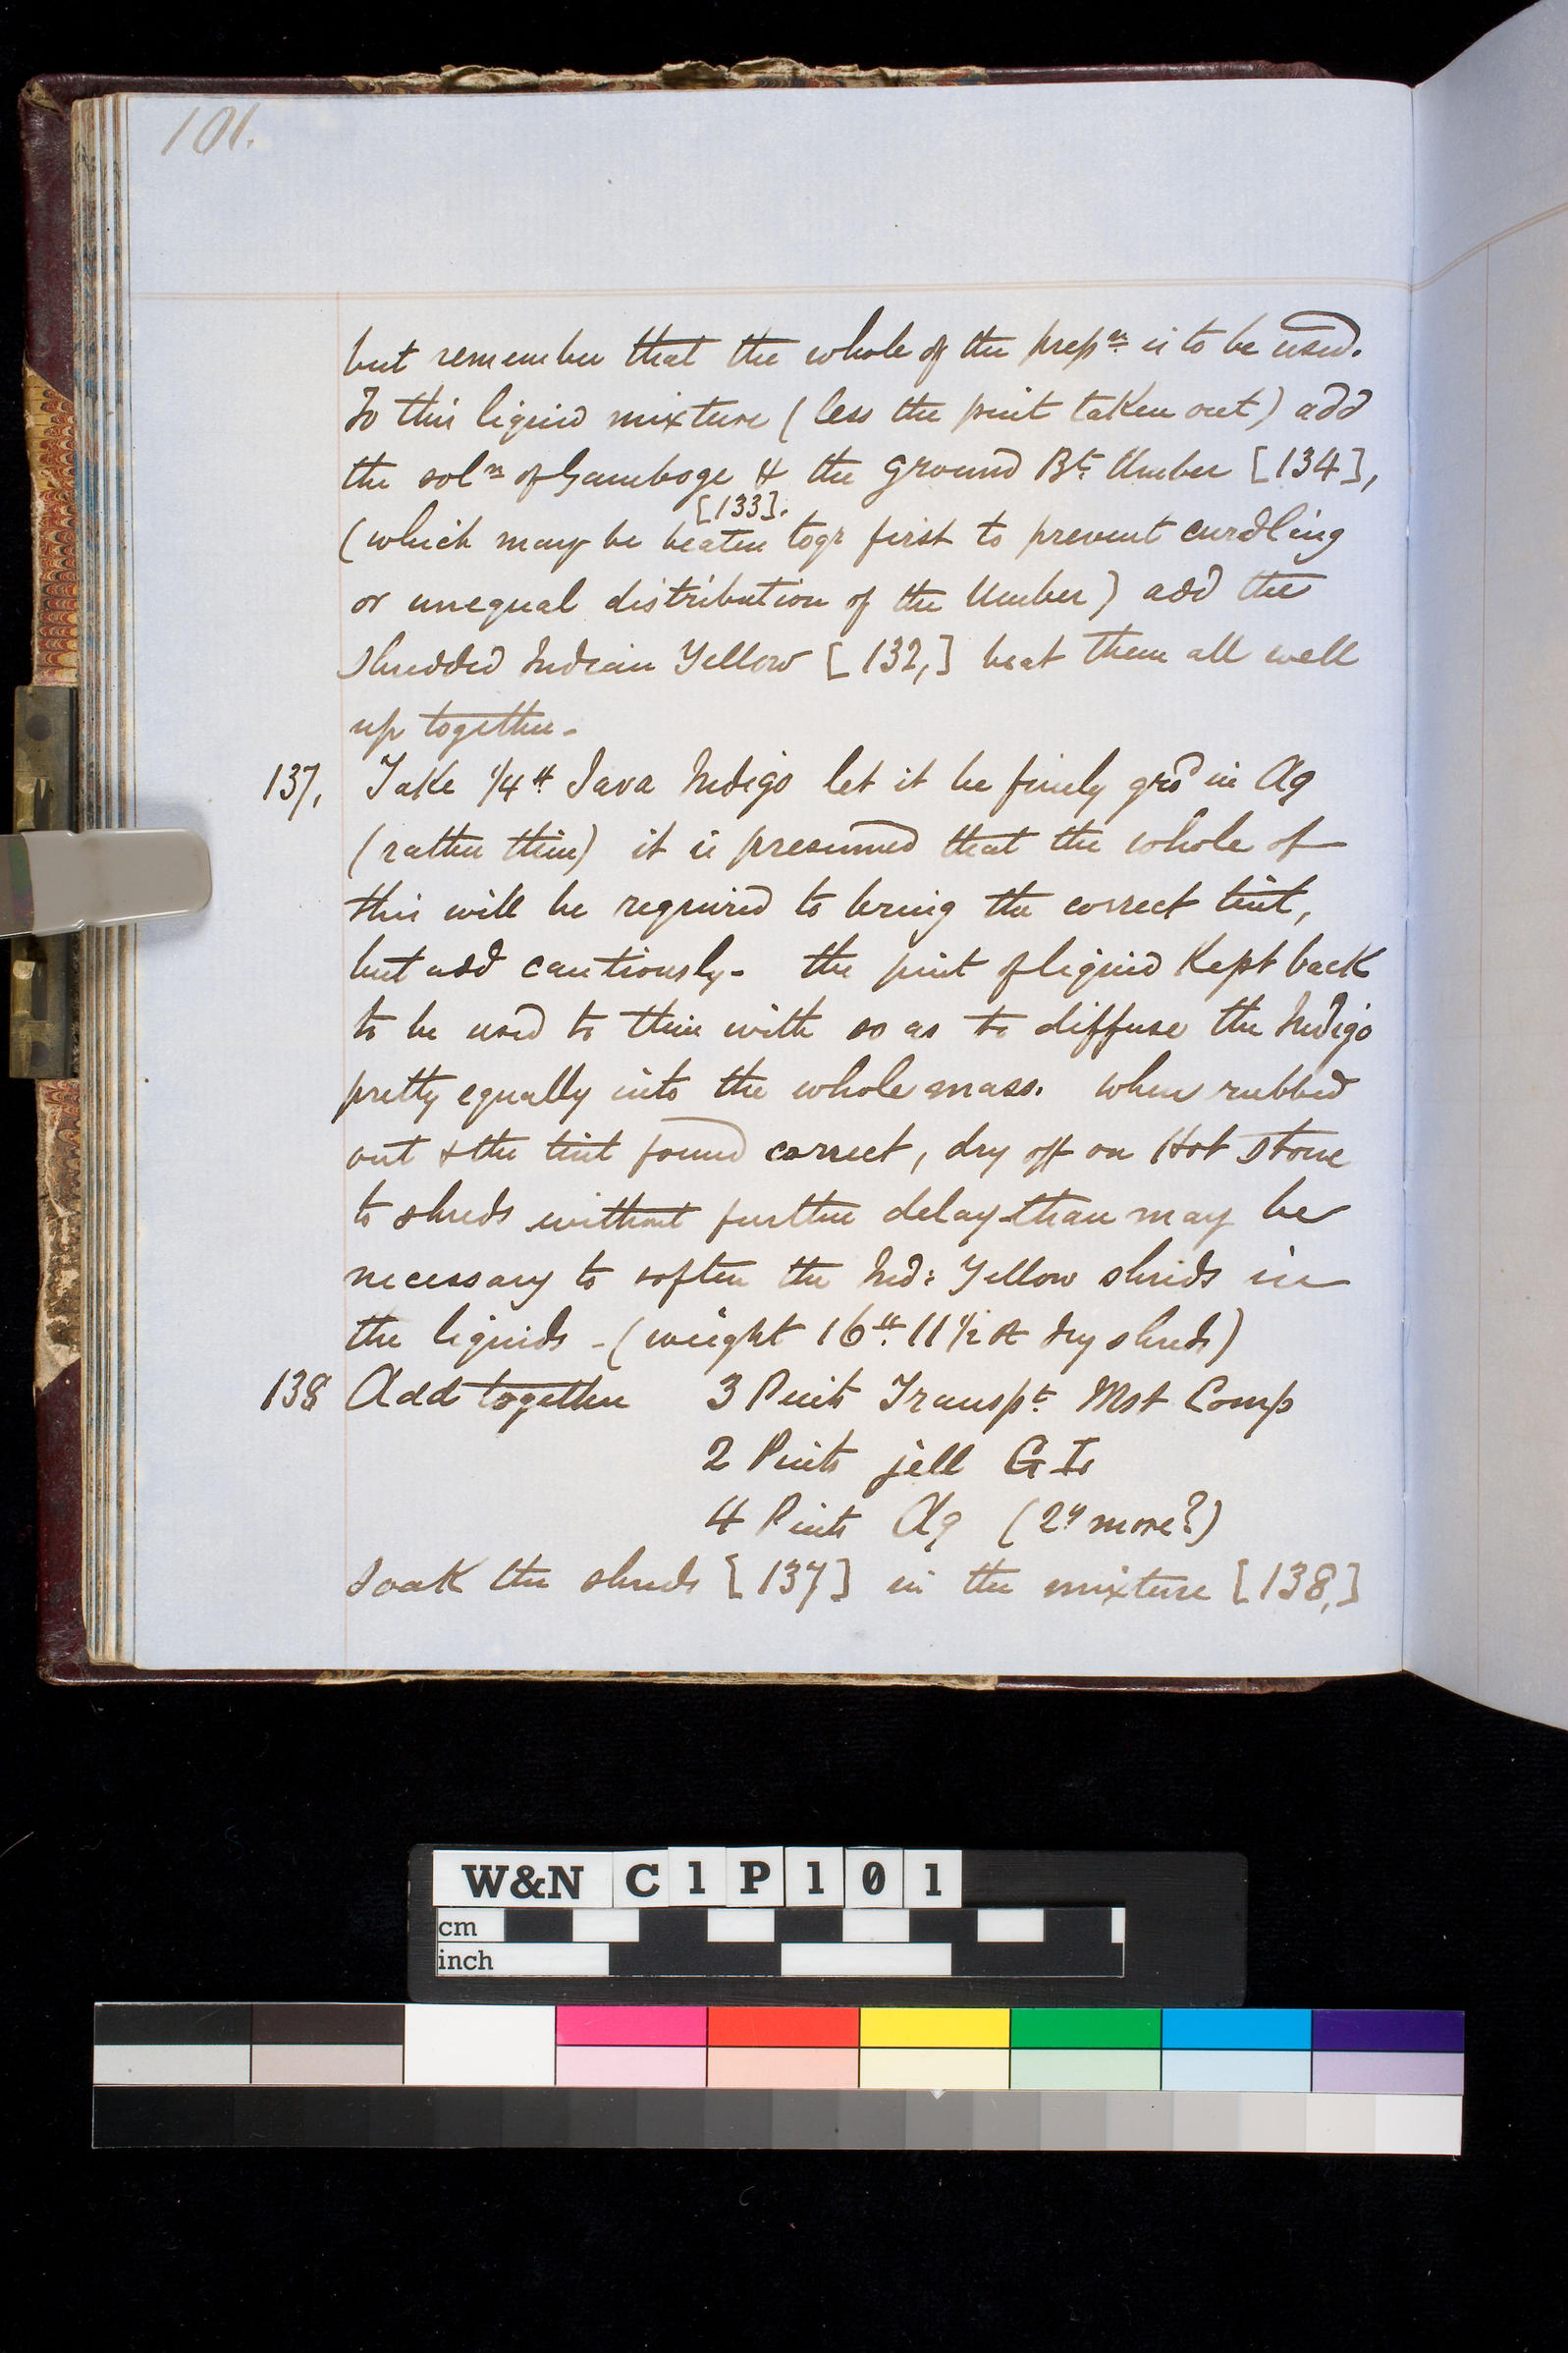 101.
but remember that the whole of the prepn is to be used.
To this liquid mixture (less the pint taken out) add
the soln of Gamboge & the ground Bt Umber [134],
[133].
(which may be beaten togr first to prevent curdling
or unequal distribution of the Umber) add the
shredded Indian Yellow [132,] beat them all well
up together-
137, Take 1/4 ℔ Java Indigo let it be finely grd in Aq
(rather thin) it is presumed that the whole of
this will be required to bring the correct tint,
but add cautiously- the pint of liquid Kept back
to be used to thin with so as to diffuse the Indigo
pretty equally into the whole mass. when rubbed
out & the tint found correct, dry off on Hot Stone
to shreds without further delay than may be
necessary to soften the Ind: Yellow shreds in
the liquids - (weight 16 ℔ 11 1/2 dry shreds)
138 Add together 3 Pints Transpt Mst Comp
2 Pints jell G Is
4 Pints Aq (2 more?)
Soak the shreds [137] in the mixture [138,]
W&N C1P101
cm
inch